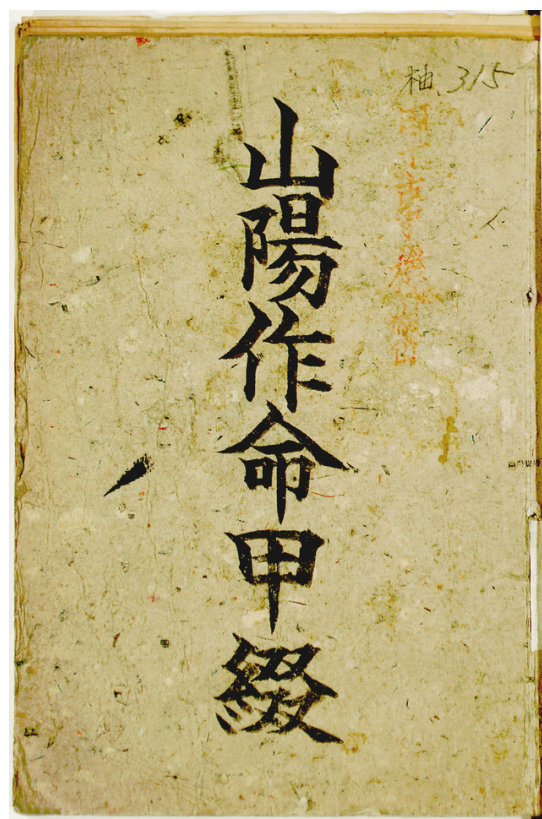 柚.315
山陽作命甲綴